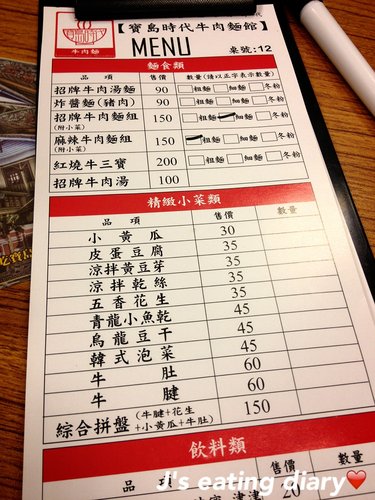 【寶島時代牛肉麵館】
牛肉麵
MENU
桌號:12
麵食類
品 項 售價 數量(請以正字表示數量)
招牌牛肉湯麵 90 粗麵 細麵 冬粉
炸醬麵(豬肉) 90 粗麵 細麵 冬粉
招牌牛肉麵組 150 粗麵 細麵 冬粉
(附小菜)
麻辣牛肉麵組 150 粗麵 細麵 冬粉
(附小菜)
紅燒牛三寶 200 粗麵 細麵 冬粉
招牌牛肉湯 100
精緻小菜類
品 項 售價 數量
小黃瓜 30
皮蛋豆腐 35
涼拌黃豆芽 35
涼拌乾絲 35
五香花生 35
青龍小魚乾 45
烏龍豆干 45
韓式泡菜 45
牛肚 60
牛腱 60
綜合拼盤(牛腱+花生+小黃瓜+牛肚) 150
飲料類
售價 數量
20
J's eating diary❤